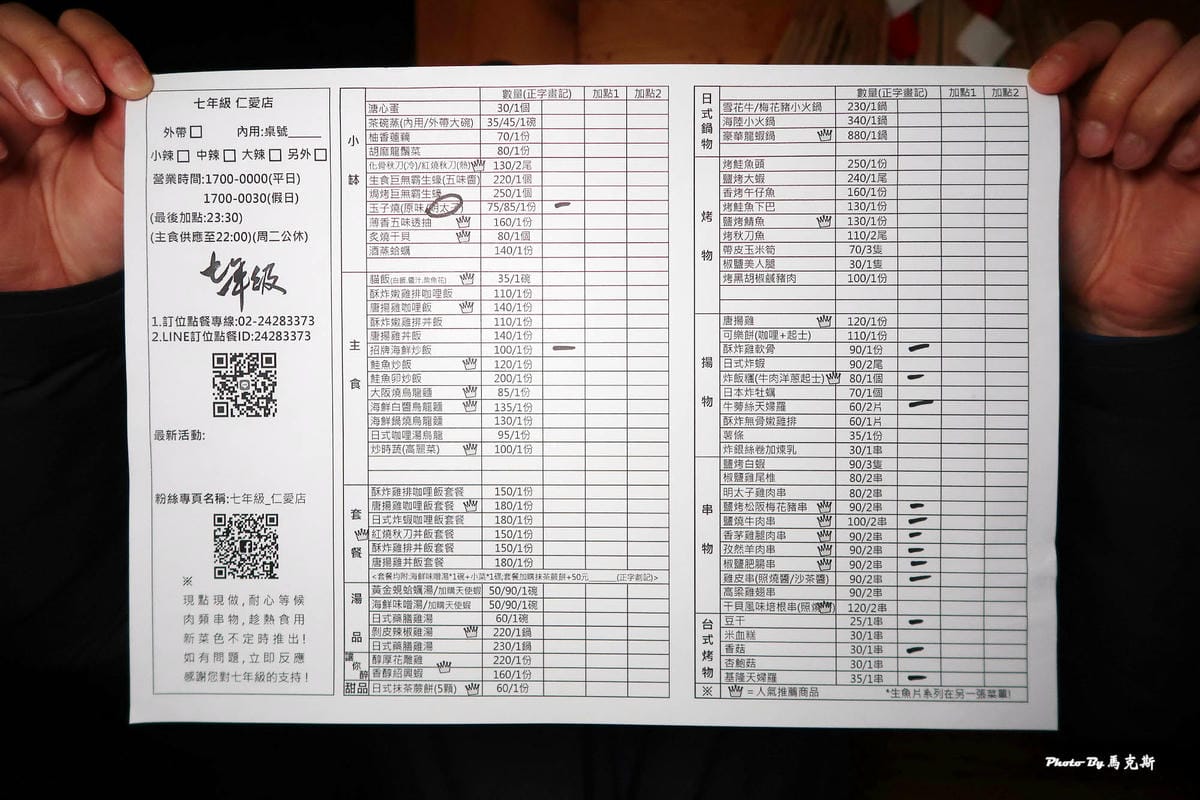 七年級 仁愛店
外帶□ 內用:桌號____
小辣□ 中辣□ 大辣□ 另外□
營業時間:1700-0000(平日)
1700-0030(假日)
(最後加點:23:30)
(主食供應至22:00)(周二公休)
七年級
1.訂位點餐專線:02-24283373
2.LINE訂位點餐ID:24283373
最新活動:
粉絲專頁名稱:七年級_仁愛店
※
現點現做,耐心等候
肉類串物,趁熱食用
新菜色不定時推出!
如有問題,立即反應
感謝您對七年級的支持!
數量(正字畫記) 加點1 加點2
小缽
溏心蛋 30/1個
茶碗蒸(內用/外帶大碗) 35/45/1碗
柚香蓮藕 70/1份
胡麻龍鬚菜 80/1份
化骨秋刀(冷)/紅燒秋刀(熱) 130/2尾
生食巨無霸生蠔(五味醬) 220/1個
焗烤巨無霸生蠔 250/1個
玉子燒(原味/明太子 75/85/1份
薄香五味透抽 160/1份
炙燒干貝 80/1個
酒蒸蛤蠣 140/1份
主食
貓飯(白飯,醬汁,柴魚花) 35/1碗
酥炸嫩雞排咖哩飯 110/1份
唐揚雞咖哩飯 140/1份
酥炸嫩雞排丼飯 110/1份
唐揚雞丼飯 140/1份
招牌海鮮炒飯 100/1份
鮭魚炒飯 120/1份
鮭魚卵炒飯 200/1份
大阪燒烏龍麵 85/1份
海鮮白醬烏龍麵 135/1份
海鮮鍋燒烏龍麵 130/1份
日式咖哩湯烏龍 95/1份
炒時蔬(高麗菜) 100/1份
套餐
酥炸雞排咖哩飯套餐 150/1份
唐揚雞咖哩飯套餐 180/1份
日式炸蝦咖哩飯套餐 180/1份
紅燒秋刀丼飯套餐 150/1份
酥炸雞排丼飯套餐 150/1份
唐揚雞丼飯套餐 180/1份
<套餐均附:海鮮味噌湯*1碗+小菜*1碟;套餐加購抹茶蕨餅+50元______(正字劃記)>
湯品
黃金蜆蛤蠣湯/加購天使蝦 50/90/1碗
海鮮味噌湯/加購天使蝦 50/90/1碗
日式藥膳雞湯 60/1碗
剝皮辣椒雞湯 220/1鍋
日式藥膳雞湯 230/1鍋
讓你醉
醇厚花雕雞 220/1份
香醇紹興蝦 160/1份
甜品 日式抹茶蕨餅(5顆) 60/1份
數量(正字畫記) 加點1 加點2
日式鍋物
雪花牛/梅花豬小火鍋 230/1鍋
海陸小火鍋 340/1鍋
豪華龍蝦鍋 880/1鍋
烤物
烤鮭魚頭 250/1份
鹽烤大蝦 240/1尾
香烤午仔魚 160/1份
烤鮭魚下巴 130/1份
鹽烤鯖魚 130/1份
烤秋刀魚 110/2尾
帶皮玉米筍 70/3隻
椒鹽美人腿 30/1隻
烤黑胡椒鹹豬肉 100/1份
揚物
唐揚雞 120/1份
可樂餅(咖哩+起士) 110/1份
酥炸雞軟骨 90/1份
日式炸蝦 90/2尾
炸飯糰(牛肉洋蔥起士) 80/1個
日本炸牡蠣 70/1個
牛蒡絲天婦羅 60/2片
酥炸無骨嫩雞排 60/1片
薯條 35/1份
炸銀絲卷加煉乳 30/1串
串物
鹽烤白蝦 90/3隻
椒鹽雞尾椎 80/2串
明太子雞肉串 80/2串
鹽烤松阪梅花豬串 90/2串
鹽燒牛肉串 100/2串
香茅雞腿肉串 90/2串
孜然羊肉串 90/2串
椒鹽肥腸串 90/2串
雞皮串(照燒醬/沙茶醬) 90/2串
高粱雞翅串 90/2串
干貝風味培根串(照燒 120/2串
台式烤物
豆干 25/1串
米血糕 30/1串
香菇 30/1串
杏鮑菇 30/1串
基隆天婦羅 35/1串
※ =人氣推薦商品 *生魚片系列在另一張菜單!
Photo By 馬克斯